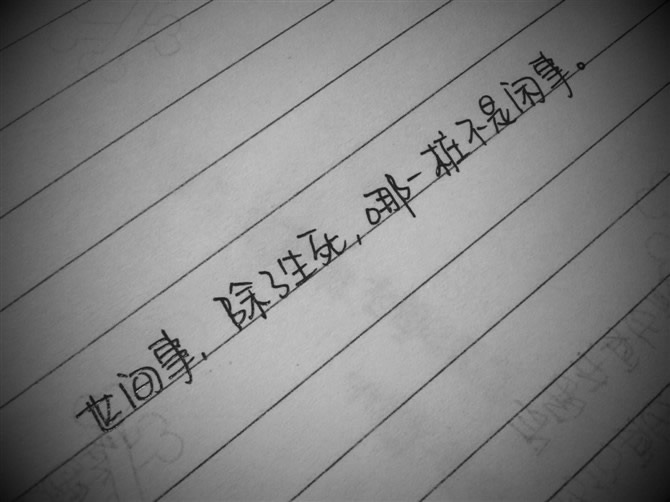 世间事，除了生死，哪一桩不是闲事。